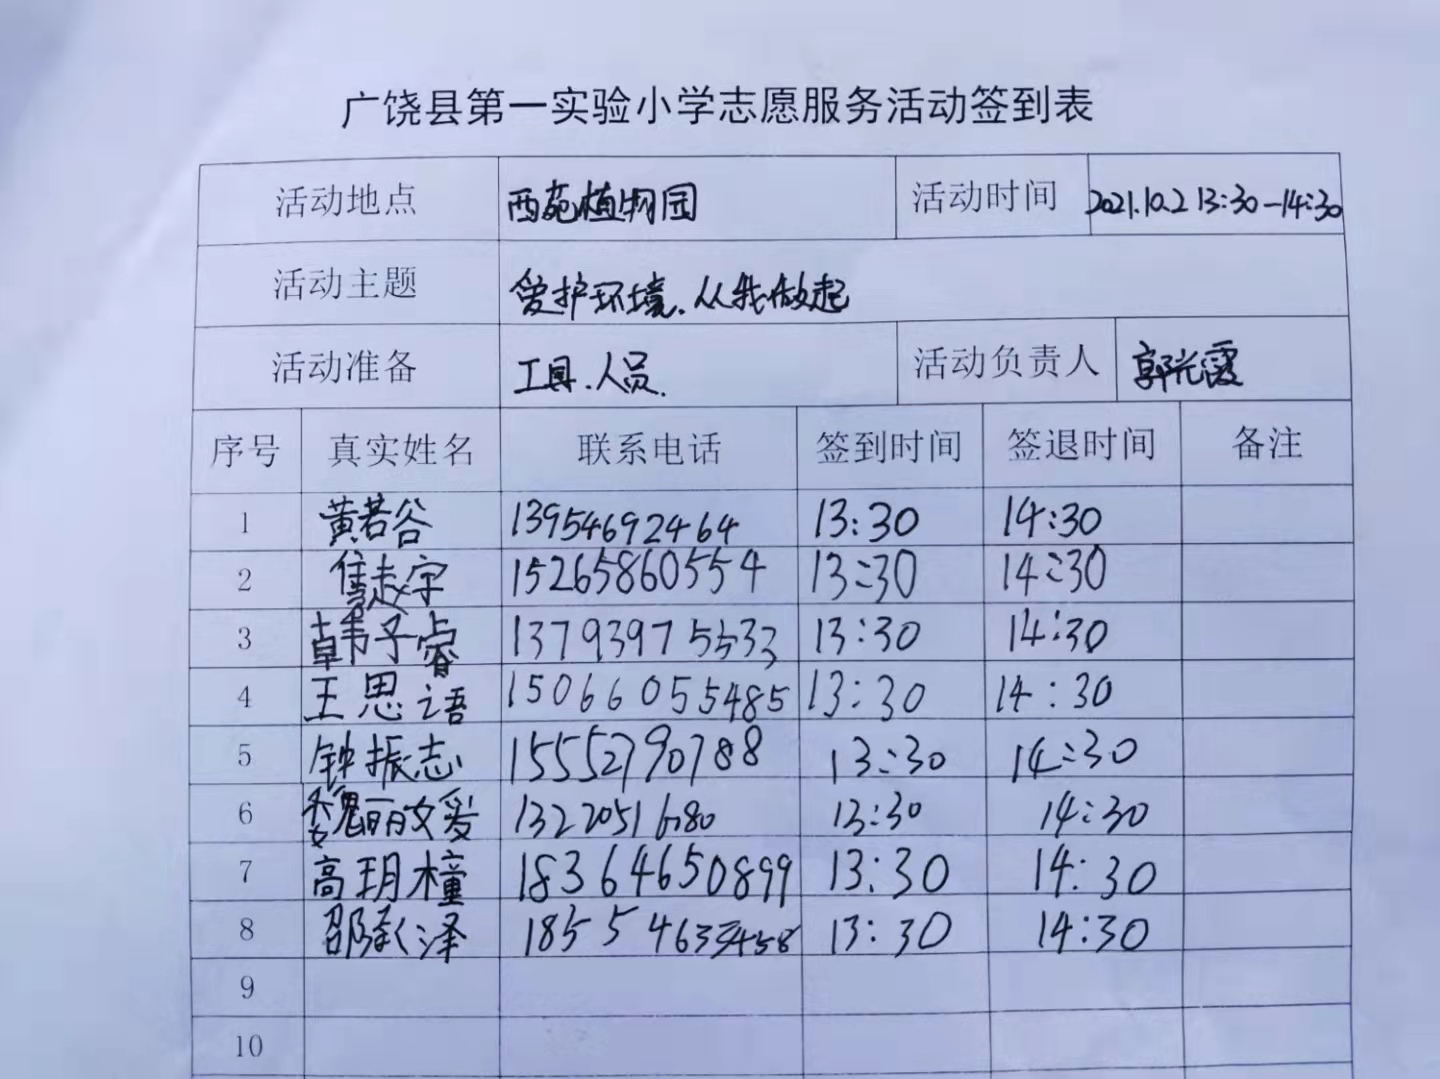 广饶县第一实验小学志愿服务活动签到表
活动地点 西苑植物园 活动时间 2021.10.2 13:30-14:30
活动主题 爱护环境.从我做起
活动准备 工具.人员. 活动负责人 郭光霞
序号 真实姓名 联系电话 签到时间 签退时间 备注
1 黄若谷 13954692464 13:30 14:30
2 焦赵宇 15265860554 13:30 14:30
3 韩子睿 13793975533 13:30 14:30
4 王思语 15066055485 13:30 14:30
5 钟振志 15552790788 13:30 14:30
6 魏丽文爱 13:30 14:30
7 高玥橦 18364650899 13:30 14:30
8 泽 13:30 14:30
9
10